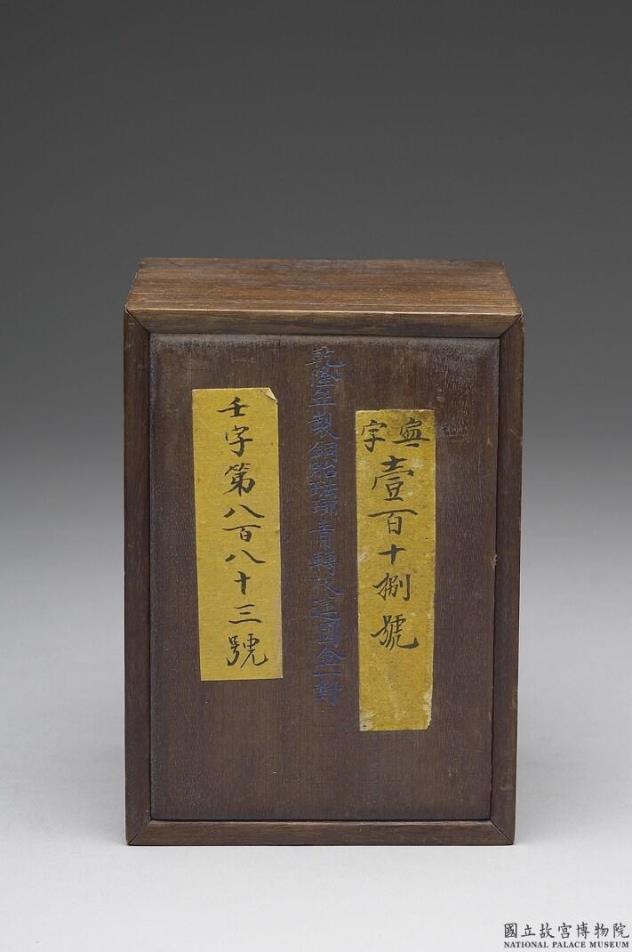 字壹百十捌號
乾隆年製銅胎琺瑯青轉枝蓮圓盒一對
壬字第八百八十三號
國立故宮博物院
NATIONAL PALACE MUSEUM